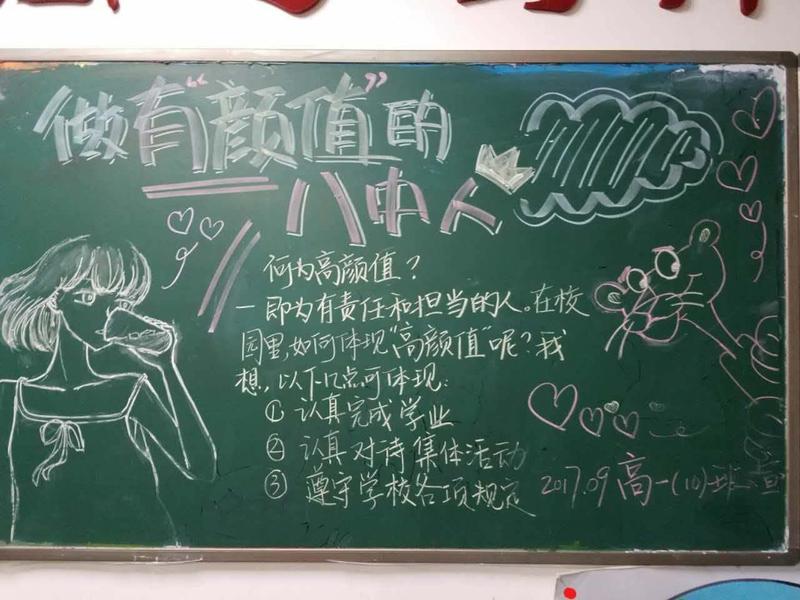 做有“颜值”的
八中人
何为高颜值？
一即为有责任和担当的人。在校
园里，如何体现“高颜值”呢？我
想，以下几点可体现：
① 认真完成学业
② 认真对诗集体活动
③ 遵守学校各项规定
2017.09 高一(10)班宣